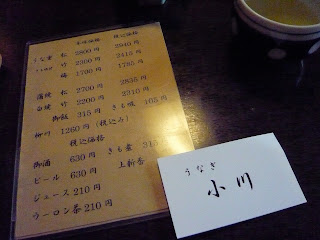 本体価格 税込価格
うな重 松 2800円 2940円
竹 2300円 2415円
梅 1700円 1785円
蒲焼 松 2700円 2835円
白焼 竹 2200円 2310円
御飯 315円 きも吸 105円
柳川 1260円(税込み)
税込価格
御酒 630円 きも煮
ビール 630円 上新香
ジュース 210円
ウーロン茶 210円
うなぎ
小川